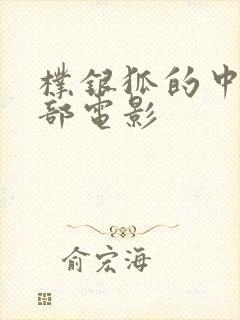 樸银狐的中
部電影
俞宏海